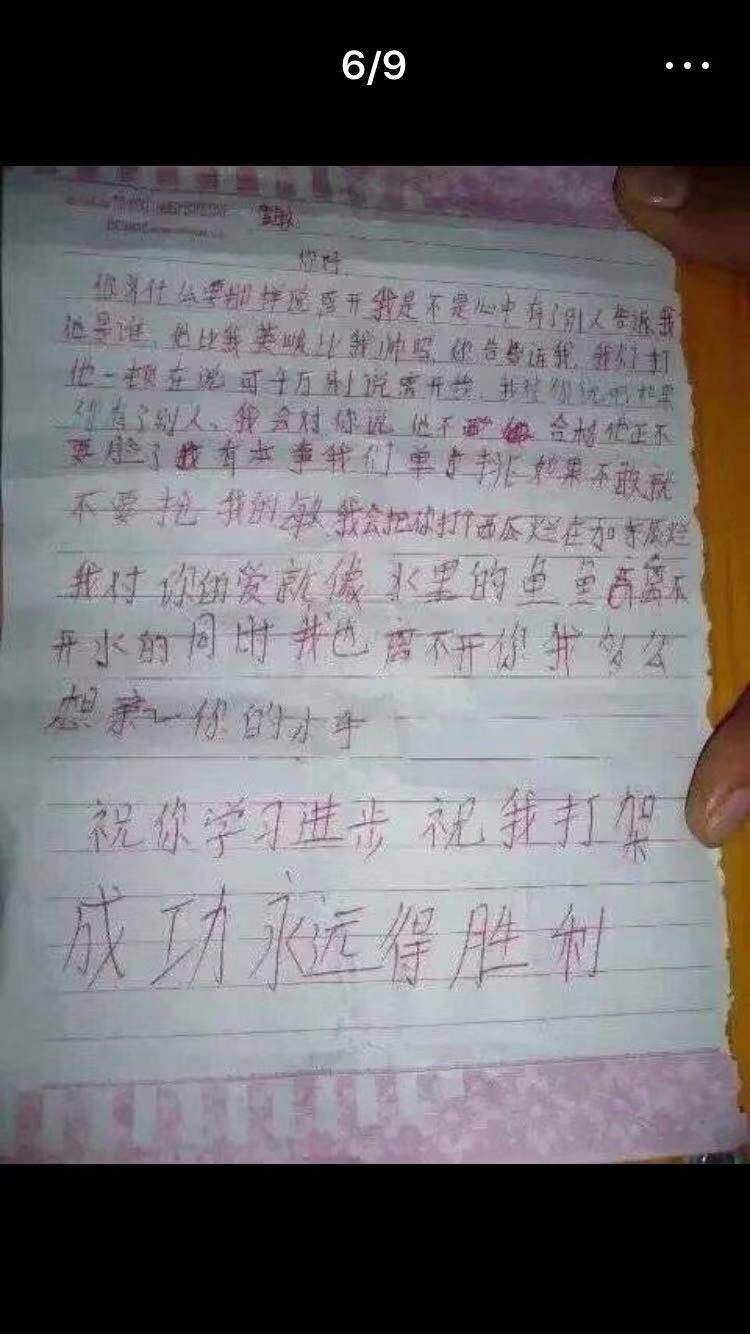 6/9
敏
你好
你为什么要那样说离开我是不是心中有了别人告诉我
他是谁、他比我英峻比我帅吗 你告诉我 我们打
他一顿在说可千万别说离开我、我 你说 如果
你有了别人、我会对你说 他不 合格他正不
要脸了我有本事我们单 挑如果不敢就
不要抢我的敏、我会把你打个西瓜烂在加 瓜烂
我对你的爱就像水里的鱼鱼 离不
开水的同时我也离不开你我多么
想亲一你的小手
祝你学习进步 祝我打架
成功永远得胜利